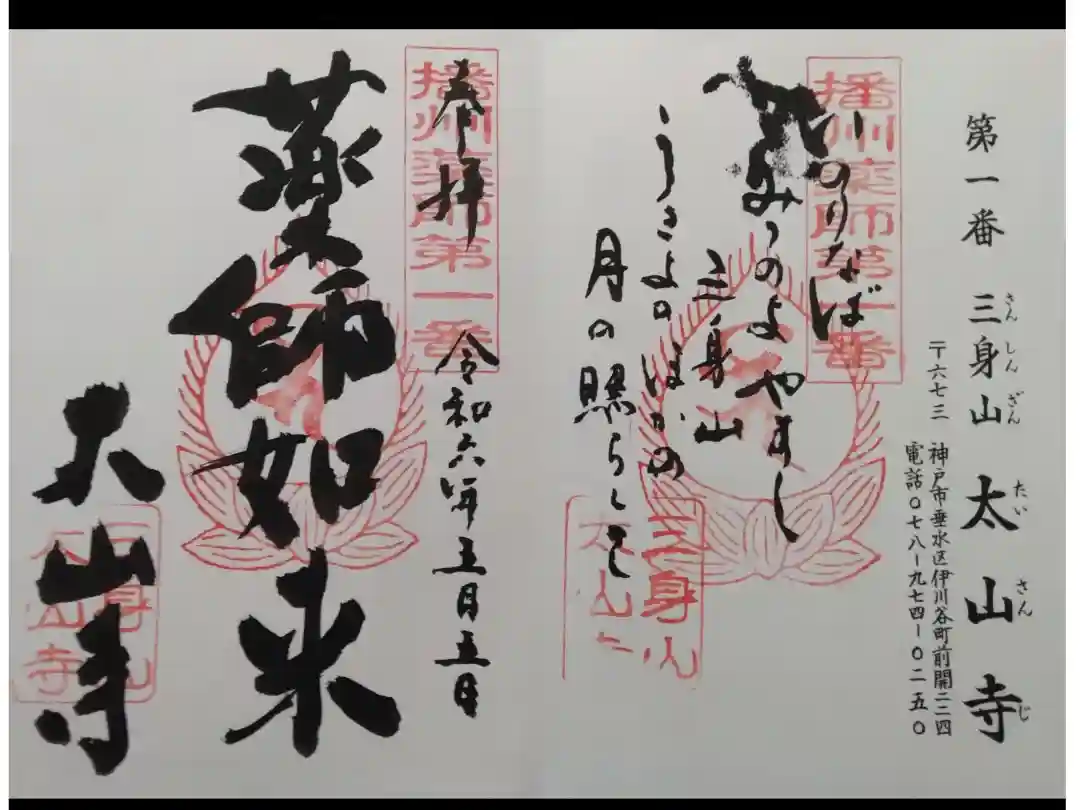 第一番 三身山 太山寺
さんしんざん たいさんじ
〒六七三 神戸市垂水区伊川谷町前開二二四
電話〇七八ー九七四ー〇二五〇
播州薬師第一番
いのりなば
みつのよやすし
三身山
うきよのほかの
月の照らして
三身山
太山
播州薬師第一番
奉拝
令和六年五月五日
薬師如来
太山寺
三身山
太山寺